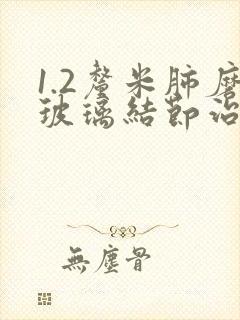 1.2釐米肺磨
玻璃結節治
無塵骨